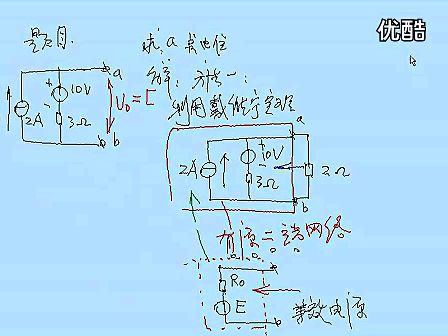 优酷
题目
求: a 点电位
解: 方法一:
利用戴维宁定理
a
10V
2A
3Ω
b
U₀ = E
a
10V
2A
3Ω
2Ω
b
有源二端网络
a
R₀
E
b
等效电源